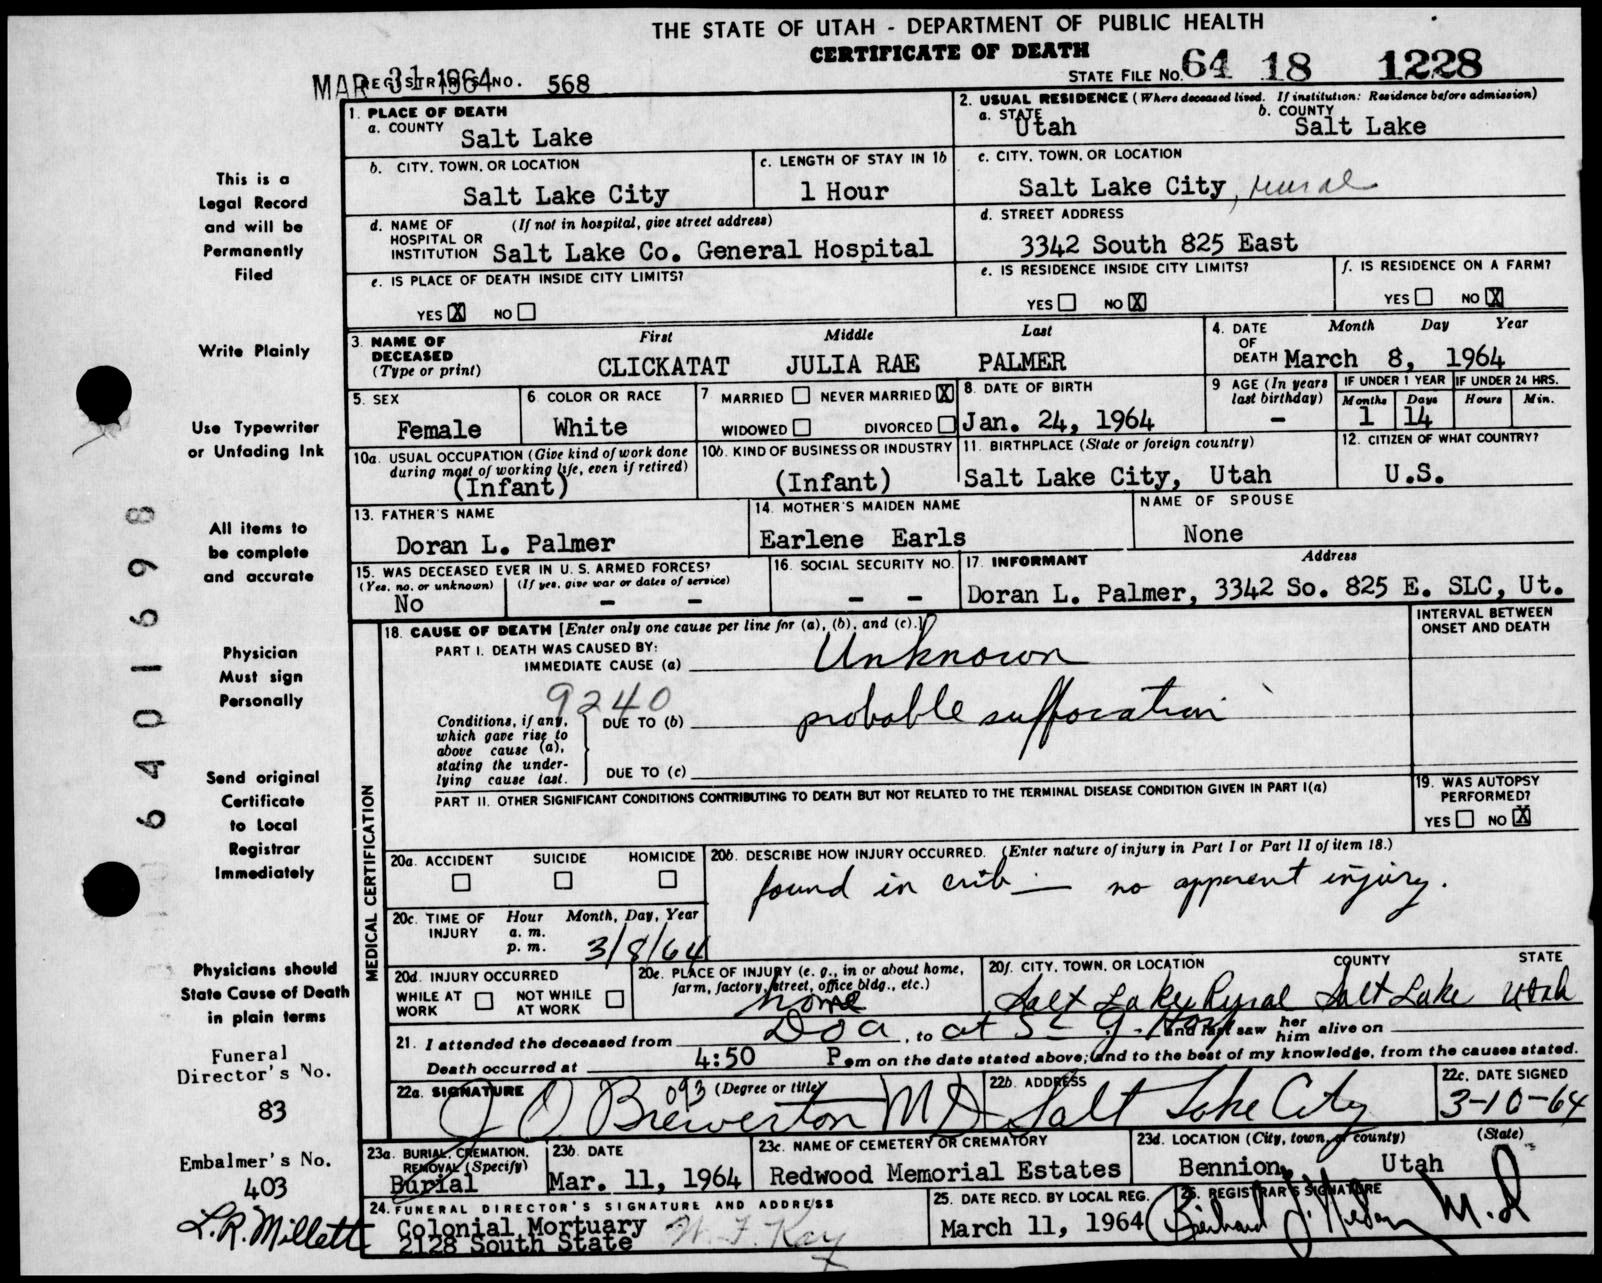 THE STATE OF UTAH - DEPARTMENT OF PUBLIC HEALTH
CERTIFICATE OF DEATH
MAR 31 1964
REGISTRAR'S NO. 568
STATE FILE NO. 64 18 1228
1. PLACE OF DEATH
a. COUNTY
Salt Lake
2. USUAL RESIDENCE (Where deceased lived. If institution: Residence before admission)
a. STATE
Utah
b. COUNTY
Salt Lake
b. CITY, TOWN, OR LOCATION
Salt Lake City
c. LENGTH OF STAY IN 1b
1 Hour
c. CITY, TOWN, OR LOCATION
Salt Lake City, rural
d. NAME OF HOSPITAL OR INSTITUTION
(If not in hospital, give street address)
Salt Lake Co. General Hospital
d. STREET ADDRESS
3342 South 825 East
e. IS PLACE OF DEATH INSIDE CITY LIMITS?
YES X NO
e. IS RESIDENCE INSIDE CITY LIMITS?
YES NO X
f. IS RESIDENCE ON A FARM?
YES NO X
3. NAME OF DECEASED (Type or print)
First Middle Last
CLICKATAT JULIA RAE PALMER
4. DATE OF DEATH
Month Day Year
March 8, 1964
5. SEX
Female
6. COLOR OR RACE
White
7. MARRIED NEVER MARRIED X
WIDOWED DIVORCED
8. DATE OF BIRTH
Jan. 24, 1964
9. AGE (In years last birthday)
-
IF UNDER 1 YEAR
Months Days
1 14
IF UNDER 24 HRS.
Hours Min.
10a. USUAL OCCUPATION (Give kind of work done during most of working life, even if retired)
(Infant)
10b. KIND OF BUSINESS OR INDUSTRY
(Infant)
11. BIRTHPLACE (State or foreign country)
Salt Lake City, Utah
12. CITIZEN OF WHAT COUNTRY?
U.S.
13. FATHER'S NAME
Doran L. Palmer
14. MOTHER'S MAIDEN NAME
Earlene Earls
NAME OF SPOUSE
None
15. WAS DECEASED EVER IN U. S. ARMED FORCES?
(Yes, no, or unknown) (If yes, give war or dates of service)
No - -
16. SOCIAL SECURITY NO.
- -
17. INFORMANT Address
Doran L. Palmer, 3342 So. 825 E. SLC, Ut.
MEDICAL CERTIFICATION
18. CAUSE OF DEATH [Enter only one cause per line for (a), (b), and (c).]
INTERVAL BETWEEN ONSET AND DEATH
PART I. DEATH WAS CAUSED BY:
IMMEDIATE CAUSE (a) Unknown
9240
Conditions, if any, which gave rise to above cause (a), stating the underlying cause last.
DUE TO (b) probable suffocation
DUE TO (c)
PART II. OTHER SIGNIFICANT CONDITIONS CONTRIBUTING TO DEATH BUT NOT RELATED TO THE TERMINAL DISEASE CONDITION GIVEN IN PART I(a)
19. WAS AUTOPSY PERFORMED?
YES NO X
20a. ACCIDENT SUICIDE HOMICIDE
20b. DESCRIBE HOW INJURY OCCURRED. (Enter nature of injury in Part I or Part II of item 18.)
found in crib — no apparent injury.
20c. TIME OF INJURY
Hour Month, Day, Year
a. m.
p. m. 3/8/64
20d. INJURY OCCURRED
WHILE AT WORK NOT WHILE AT WORK
20e. PLACE OF INJURY (e. g., in or about home, farm, factory, street, office bldg., etc.)
home
20f. CITY, TOWN, OR LOCATION COUNTY STATE
Salt Lake Rural Salt Lake Utah
21. I attended the deceased from DOA, to at SL G. Hosp and last saw her him alive on
Death occurred at 4:50 P.m on the date stated above; and to the best of my knowledge, from the causes stated.
22a. SIGNATURE 093 (Degree or title)
J O Brewerton MD
22b. ADDRESS
Salt Lake City
22c. DATE SIGNED
3-10-64
23a. BURIAL, CREMATION, REMOVAL (Specify)
Burial
23b. DATE
Mar. 11, 1964
23c. NAME OF CEMETERY OR CREMATORY
Redwood Memorial Estates
23d. LOCATION (City, town, or county) (State)
Bennion, Utah
24. FUNERAL DIRECTOR'S SIGNATURE AND ADDRESS
Colonial Mortuary
2128 South State
25. DATE RECD. BY LOCAL REG.
March 11, 1964
26. REGISTRAR'S SIGNATURE
M.D
This is a
Legal Record
and will be
Permanently
Filed
Write Plainly
Use Typewriter
or Unfading Ink
All items to
be complete
and accurate
Physician
Must sign
Personally
Send original
Certificate
to Local
Registrar
Immediately
Physicians should
State Cause of Death
in plain terms
Funeral
Director's No.
83
Embalmer's No.
403
L.R. Millett
6401698